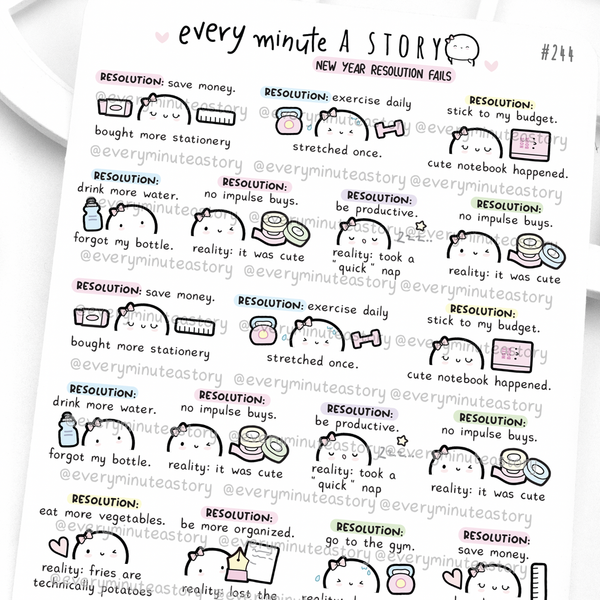 every minute A STORY
#244
NEW YEAR RESOLUTION FAILS
RESOLUTION: save money.
bought more stationery
RESOLUTION: exercise daily
stretched once.
RESOLUTION:
stick to my budget.
cute notebook happened.
@everyminuteastory @everyminuteastory @everyminuteastory
RESOLUTION:
drink more water.
forgot my bottle.
RESOLUTION:
no impulse buys.
reality: it was cute
RESOLUTION:
be productive.
reality: took a
"quick" nap
RESOLUTION:
no impulse buys.
reality: it was cute
@everyminuteastory @everyminuteastory @everyminuteastory
RESOLUTION: save money.
bought more stationery
RESOLUTION: exercise daily
stretched once.
RESOLUTION:
stick to my budget.
cute notebook happened.
@everyminuteastory @everyminuteastory @everyminuteastory
RESOLUTION:
drink more water.
forgot my bottle.
RESOLUTION:
no impulse buys.
reality: it was cute
RESOLUTION:
be productive.
reality: took a
"quick" nap
RESOLUTION:
no impulse buys.
reality: it was cute
@everyminuteastory @everyminuteastory @everyminuteastory
RESOLUTION:
eat more vegetables.
reality: fries are
technically potatoes
RESOLUTION:
be more organized.
reality: lost the
RESOLUTION:
go to the gym.
RESOLUTION:
save money.